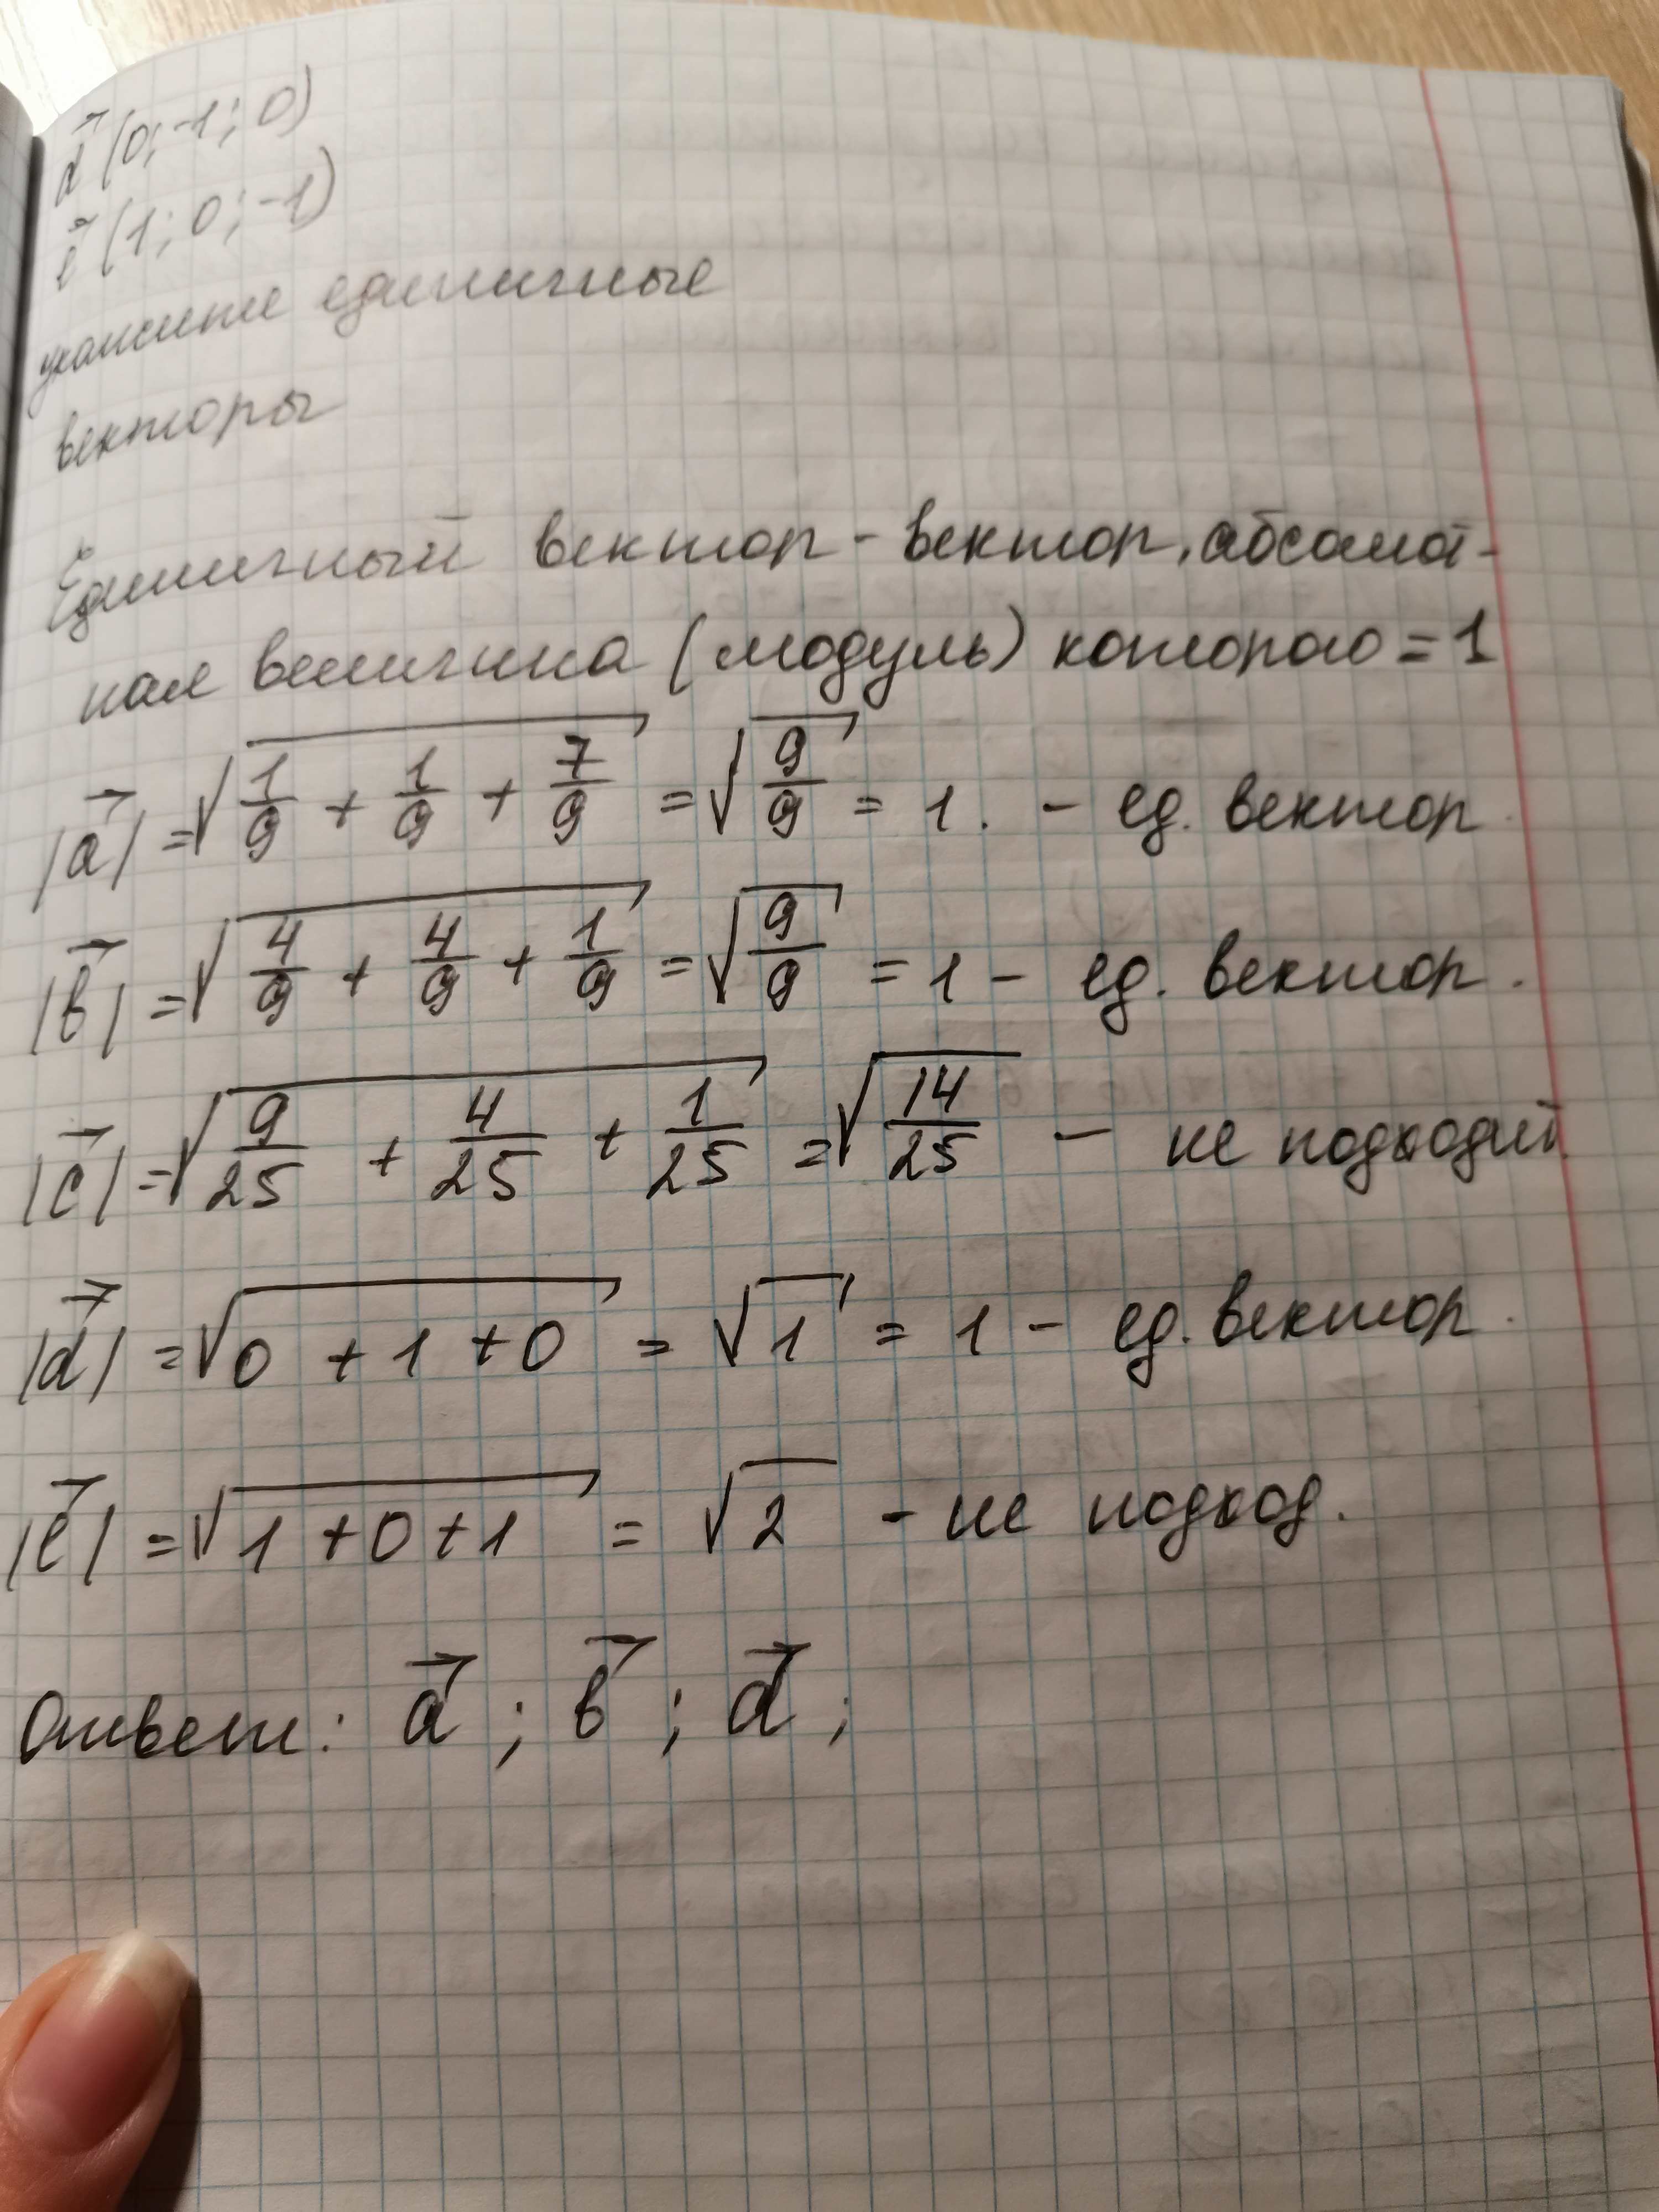 d⃗ (0; -1; 0)
e⃗ (1; 0; -1)
укажите единичные
векторы
Единичный вектор - вектор, абсолют-
ная величина (модуль) которого = 1
|a⃗| = √(1/9 + 1/9 + 7/9) = √(9/9) = 1. - ед. вектор
|b⃗| = √(4/9 + 4/9 + 1/9) = √(9/9) = 1 - ед. вектор.
|c⃗| = √(9/25 + 4/25 + 1/25) = √(14/25) - не подходит
|d⃗| = √(0 + 1 + 0) = √1 = 1 - ед. вектор.
|e⃗| = √(1 + 0 + 1) = √2 - не подход.
Ответ: a⃗; b⃗; d⃗;